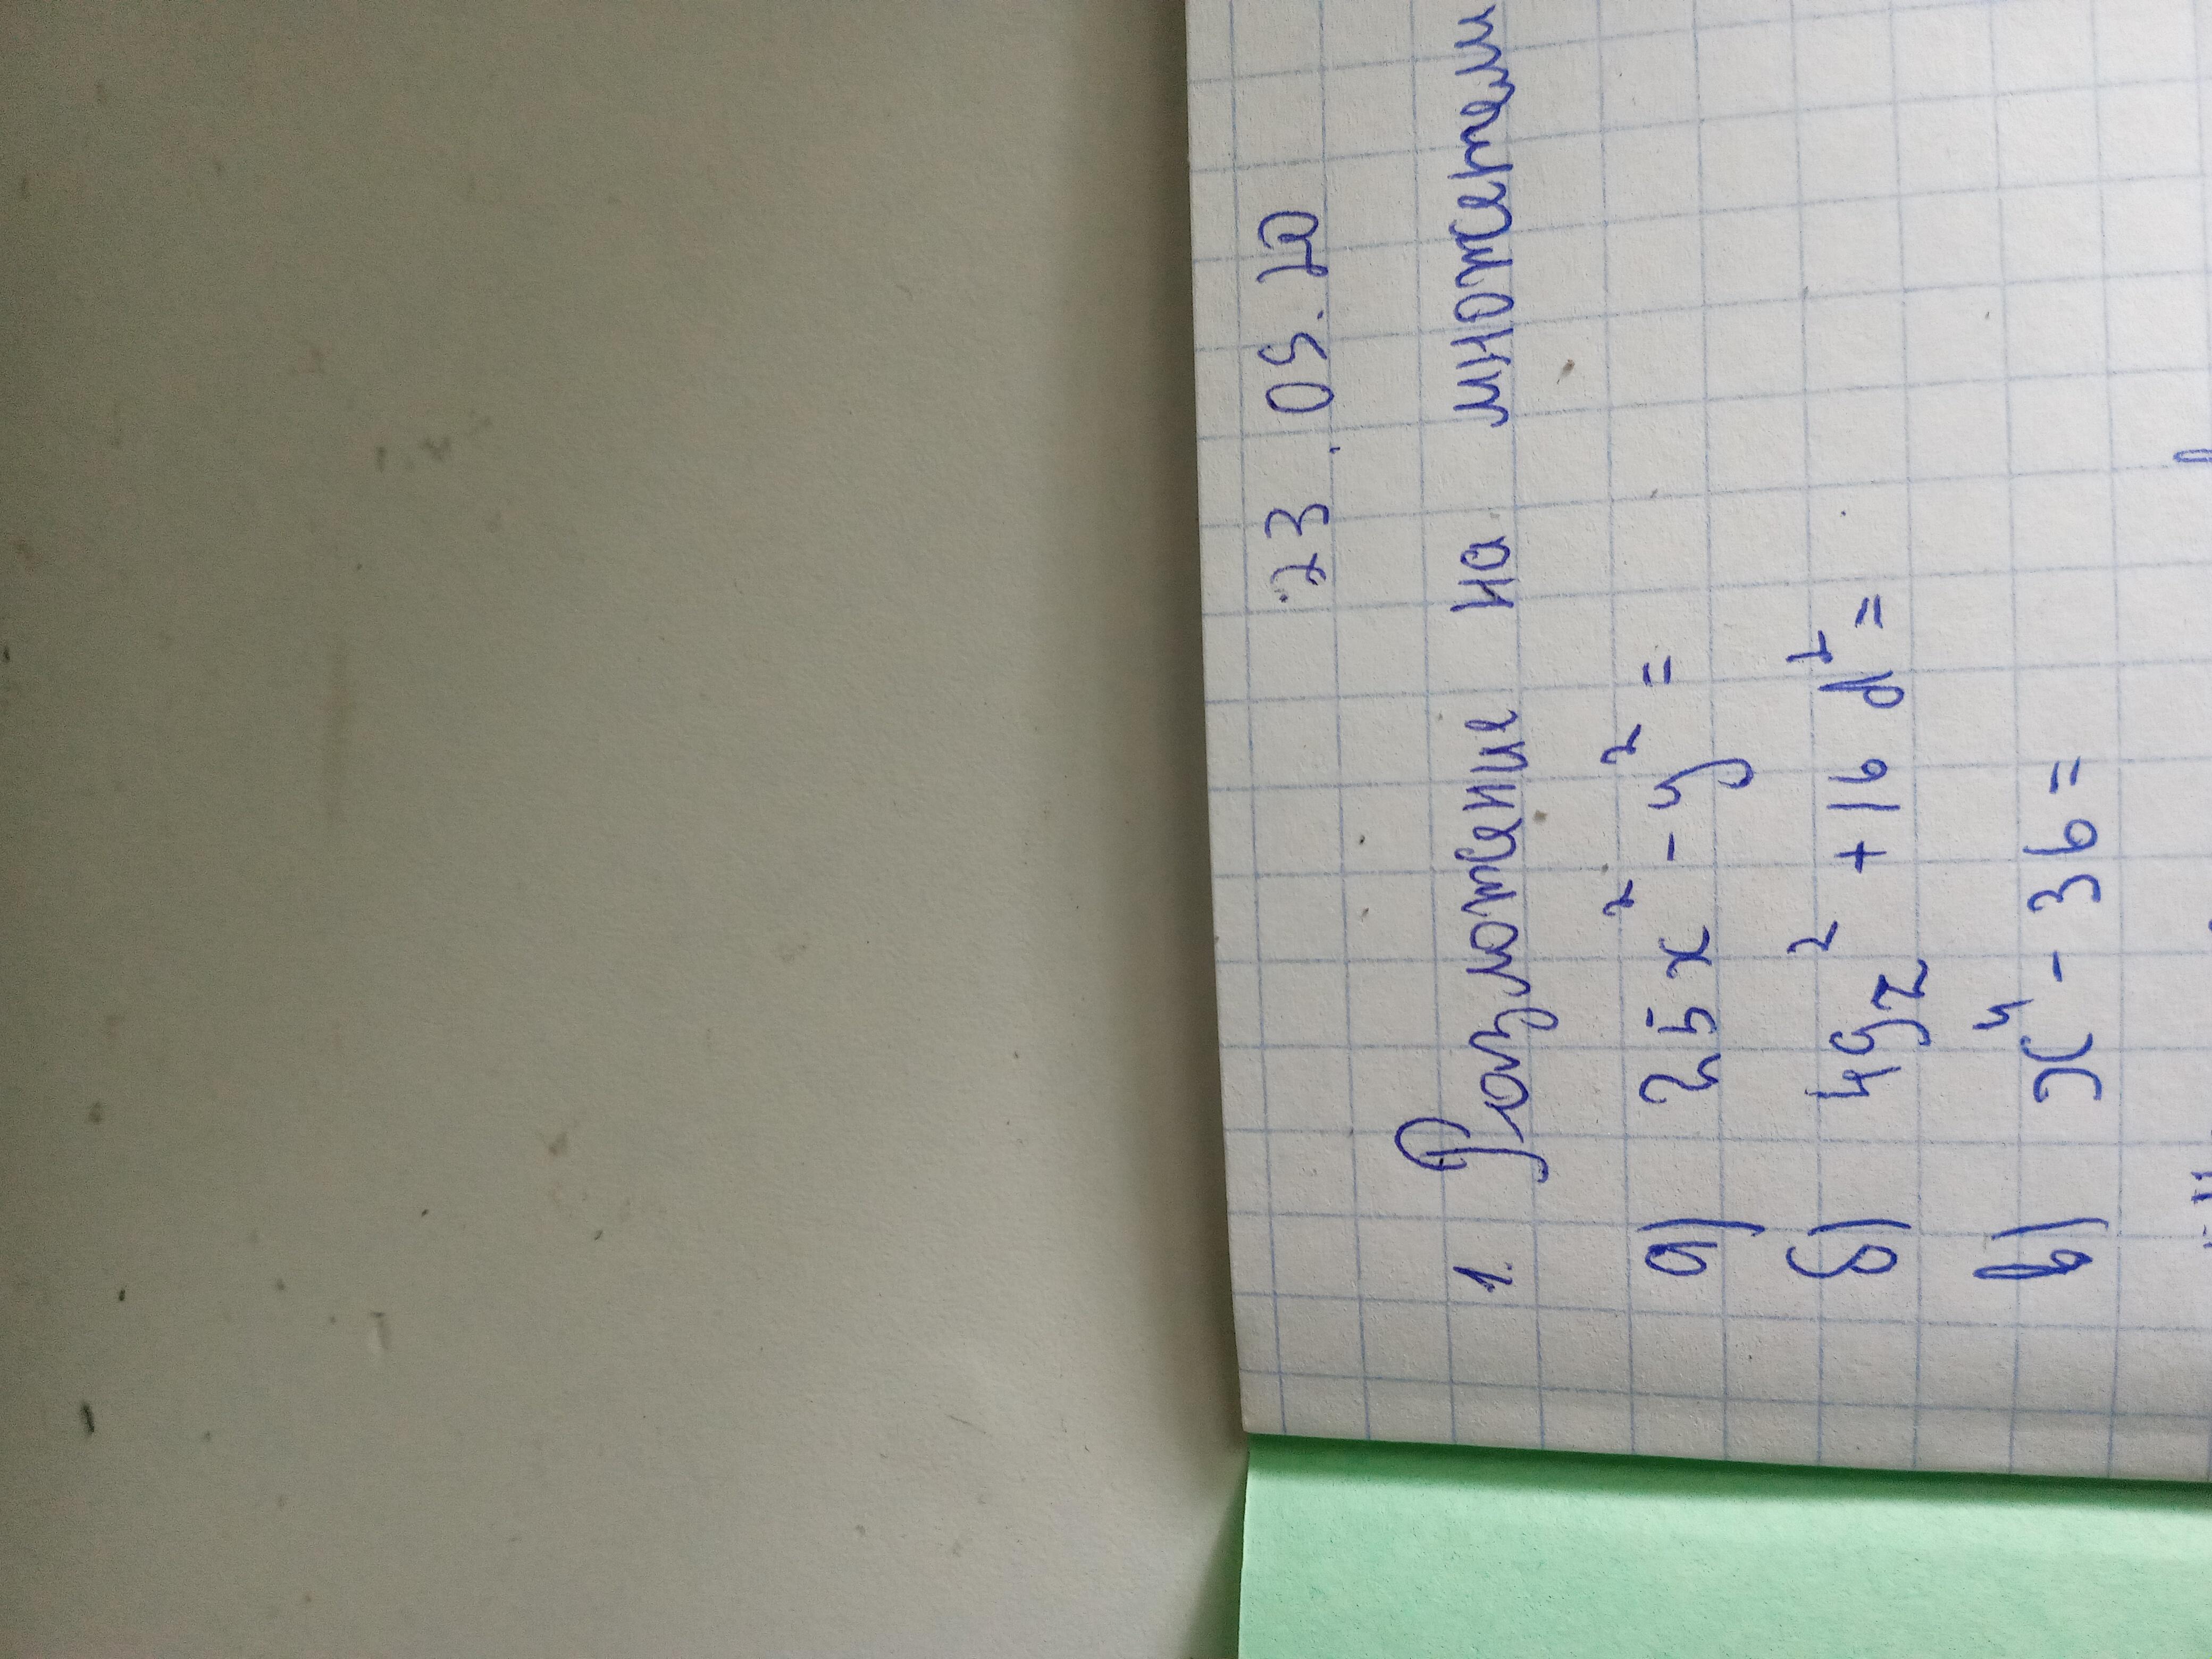 23.05.20
1. Разложение на множители
а) 25x² - y² =
б) 49z² + 16d² =
в) x⁴ - 36 =